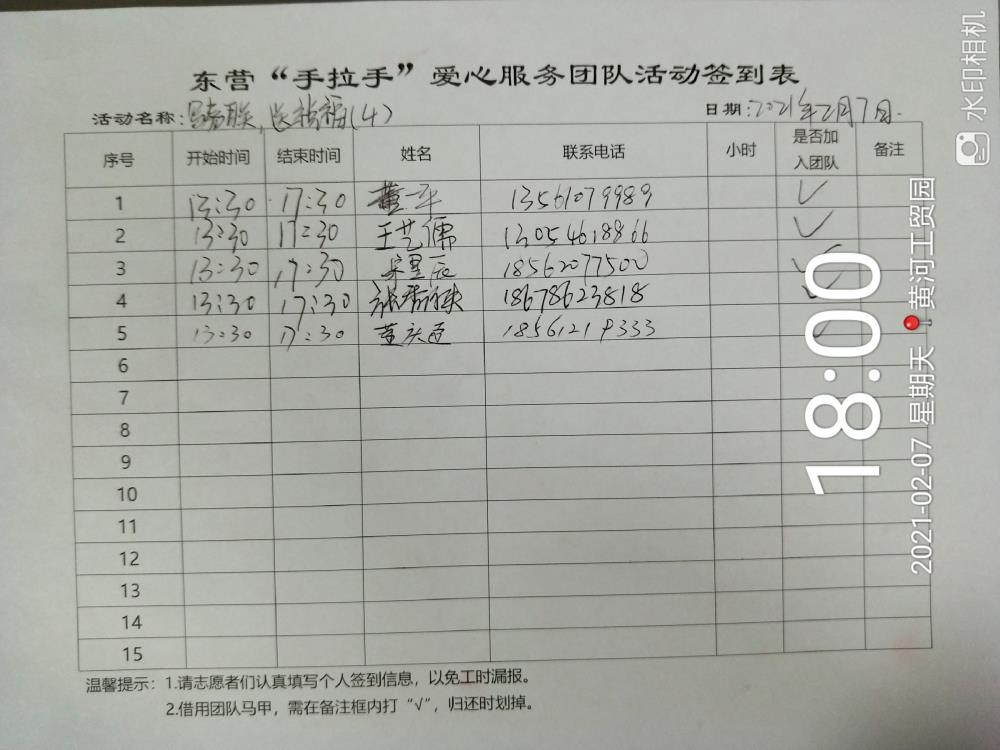 东营“手拉手”爱心服务团队活动签到表
活动名称：写春联，送祝福(4) 日期：2021年2月7日.
序号 开始时间 结束时间 姓名 联系电话 小时 是否加入团队 备注
1 13:30 17:30 董一平 13561079989 ✓
2 13:30 17:30 王艺儒 13054618866 ✓
3 13:30 17:30 宋星辰 18562077500 ✓
4 13:30 17:30 18678623818 ✓
5 13:30 17:30 18561219333 ✓
6
7
8
9
10
11
12
13
14
15
温馨提示：1.请志愿者们认真填写个人签到信息，以免工时漏报。
2.借用团队马甲，需在备注框内打“√”，归还时划掉。
18:00
2021-02-07 星期天 黄河工贸园
水印相机